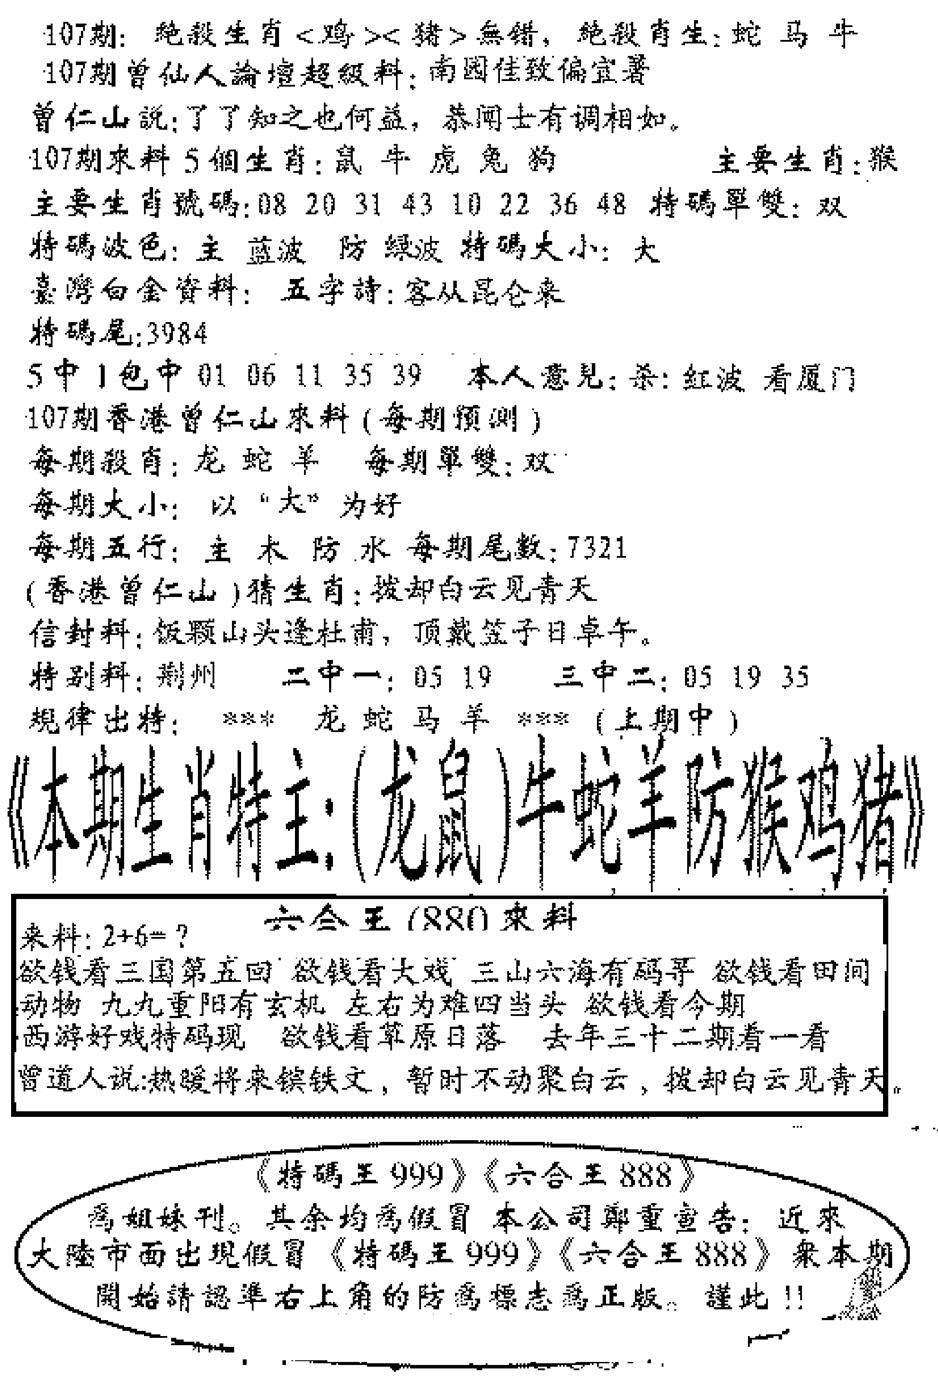 107期: 絶殺生肖<鸡><猪>無錯，絶殺肖生:蛇 马 牛
107期曾仙人論壇超級料:南园佳致偏宜暑
曾仁山説:了了知之也何益，恭闻士有调相如。
107期來料 5 個生肖:鼠 牛 虎 兔 狗 主要生肖:猴
主要生肖號碼:08 20 31 43 10 22 36 48 特碼單雙: 双
特碼波色: 主 蓝波 防 绿波 特碼大小: 大
臺灣白金資料: 五字詩:客从昆仑来
特碼尾:3984
5 中 1 包中 01 06 11 35 39 本人意見:杀:红波 看厦门
107期香港曾仁山來料(每期預測)
每期殺肖: 龙 蛇 羊 每期單雙:双
每期大小: 以“大”为好
每期五行: 主 木 防 水 每期尾數:7321
(香港曾仁山)猜生肖:拨却白云见青天
信封料:饭颗山头逢杜甫，顶戴笠子日卓午。
特别料:荆州 二中一: 05 19 三中二:05 19 35
規律出特: *** 龙 蛇 马 羊 *** (上期中)
《本期生肖特主:(龙鼠)牛蛇羊防猴鸡猪》
六合王(880)來料
来料: 2+6=?
欲钱看三国第五回 欲钱看大戏 三山六海有码寻 欲钱看田间
动物 九九重阳有玄机 左右为难四当头 欲钱看今期
西游好戏特码现 欲钱看草原日落 去年三十二期看一看
曾道人说:热暖将来镔铁文，暂时不动聚白云，拨却白云见青天。
《特碼王 999》《六合王 888》
爲姐妹刊。其余均爲假冒 本公司鄭重宣告: 近來
大陸市面出現假冒《特碼王 999》《六合王 888》衆本期
開始請認準右上角的防爲標志爲正版。謹此!!